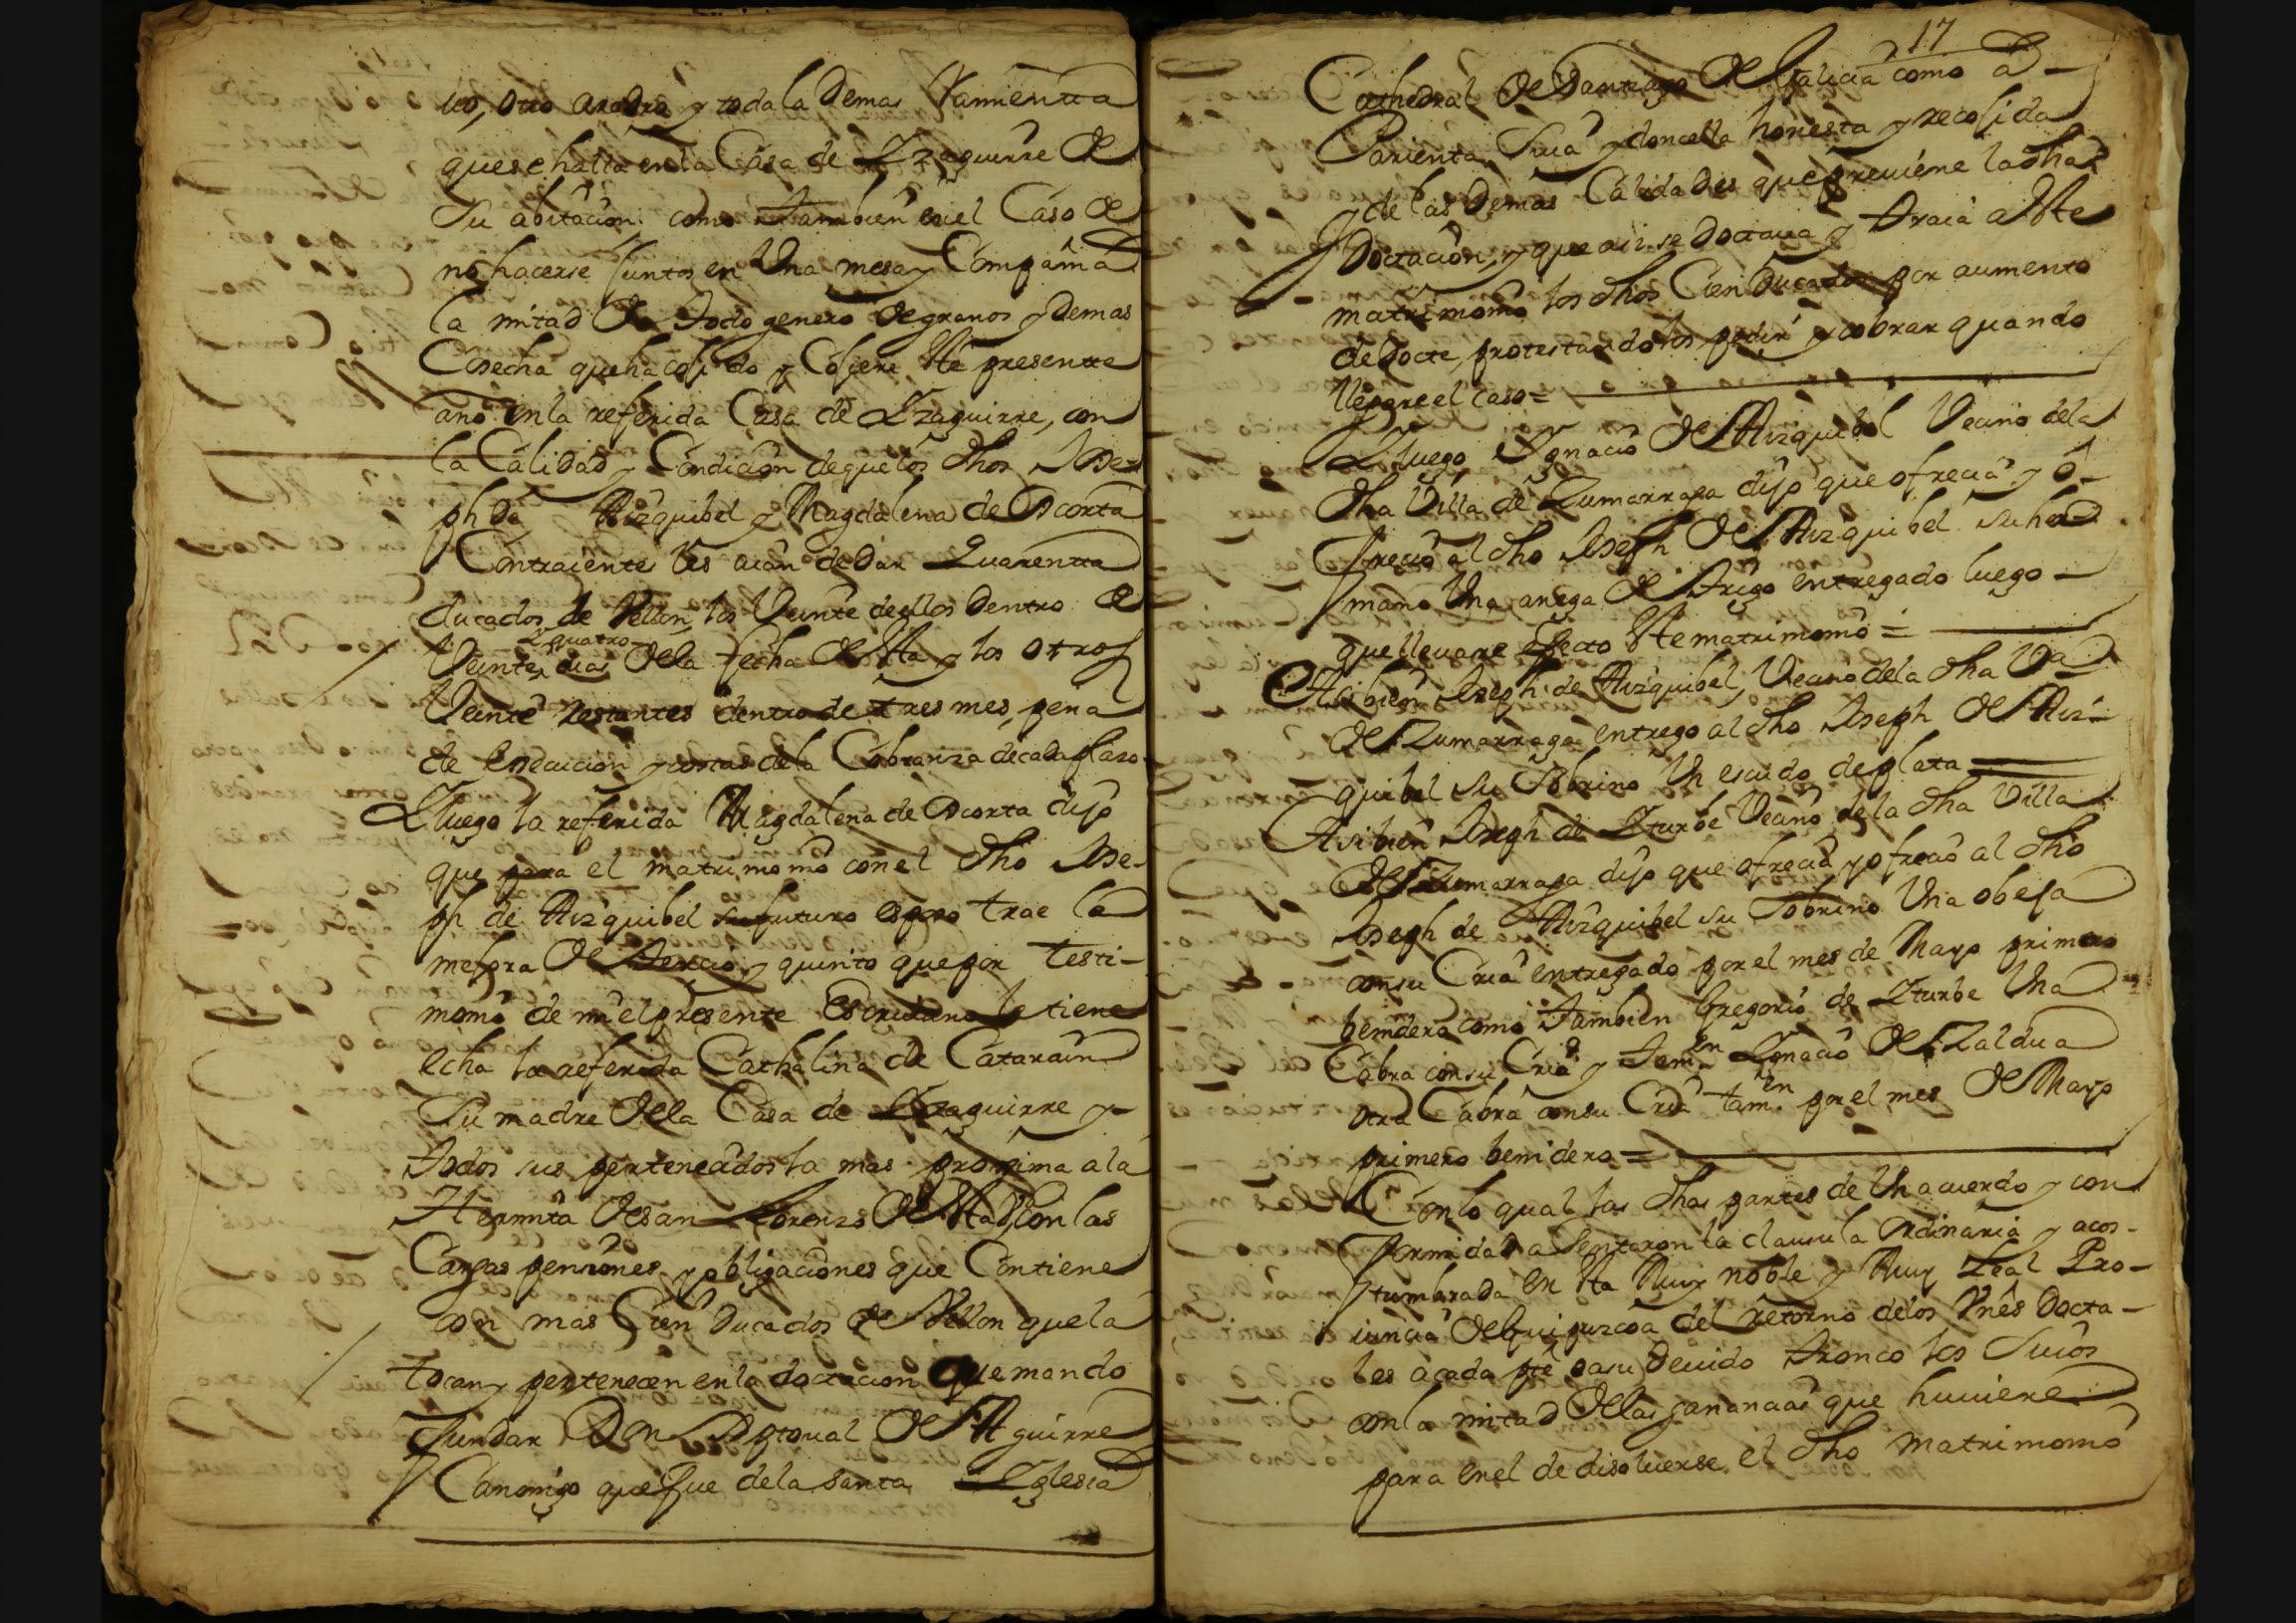 uo, otro aradro y toda la Demas Ramientta
quese halla en la Casa de Yzaguirre de
Su abitacion: como tambien en el Caso de
no hacerse Juntos en Una mesa y Compañia
la mitad de todo genero de granos y Demas
Cosecha que ha cojido y Cojiere este presentte
año en la referida Casa de Yzaguirre, con
la Calidad y Condicion de que los dhos Jose-
ph de Aizquibel y Magdalena de Acorta
Contraientes les aian de Dar Quarentta
ducados de Vellon, los Veinte dellos Dentro de
y quatro
Veinte dias de la fecha de esta y los otros
Veinte restantes dentro de tres mes, pena
de execucion y costas de la Cobranza de cada plazo
Y luego la referida Magdalena de Acorta dijo
que para el matrimonio con el dho Jose-
ph de Aizquibel su futuro esposo trae la
mejora de tercio y quinto que por testi-
monio de mi el presente escrivano le tiene
echa la referida Cathalina de Catarain
Su madre de la Casa de Yzaguirre y
todos sus pertenecidos la mas proxima a la
Hermita de san Lorenzo de esta Va con las
Cargas pensiones y obligaciones que Contiene
con mas Cien Ducados de Vellon que la
tocan y pertenecen en la doctacion que mando
fundar Don Xptoual de Aguirre
Canonigo que fue de la Santa Yglesia
17
Cathedral de Santiago de Galicia como a
Parienta Suia y doncella honesta y recojida
y de las Demas Calidades que previene la dha
Doctacion, y que assi se doctaua y traia a este
matrimonio los dhos Cien Ducados por aumento
de Docte, protestando los pedir y cobrar quando
llegare el caso =
Y luego Ygnacio de Aizquibel Vecino de la
dha Villa de Zumarraga dijo que ofrecia y o-
frecio al dho Joseph de Aizquibel su her
mano Una anega de trigo entregado luego
que lleuare efecto este matrimonio =
Asi bien Joseph de Aizquibel, Vecino de la dha Va
de Zumarraga entrego al dho Joseph de Aiz-
quibel su Sobrino Un escudo de plata
Asi bien Joseph de Yturbe Vecino de la dha Villa
de Zumarraga dijo que ofrecia y ofrecio al dho
Joseph de Aizquibel su Sobrino Una obeja
con su Cria entregado por el mes de Mayo primero
benidero como tambien Gregorio de Yturbe Una
Cabra con su Cria y tamen Ygnacio de Zaldua
otra Cabra con su Cria tamen por el mes de Mayo
primero benidero =
Con lo qual las dhas partes de Un acuerdo y con
formidad asentaron la clausula ordinaria y acos-
tumbrada en esta Muy noble y Muy Leal Pro-
uincia de Guipuzcoa del retorno de los Vnes Docta-
les a cada pte o a su Deuido tronco los Suios
con la mitad de las ganancias que huuiere
para en el de disoluerse el dho matrimonio